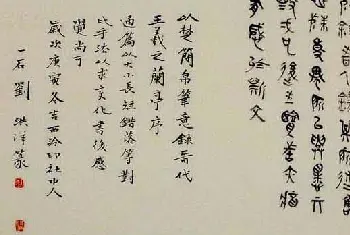 世殊事異所以興懷其
致一也後之覽者亦將
有感於斯文
以楚簡帛筆意錄晉代
王羲之蘭亭序
通篇以大小長短錯落等對
比手法以求變化書後感
覺尚可
歲次庚寅冬吉西泠印社中人
一石劉洪洋篆